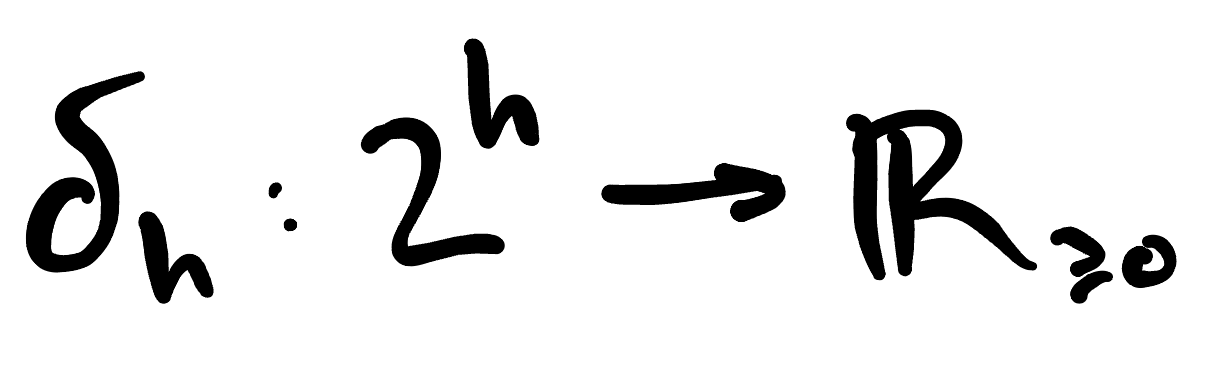 δₕ : 2ʰ → ℝ≥0